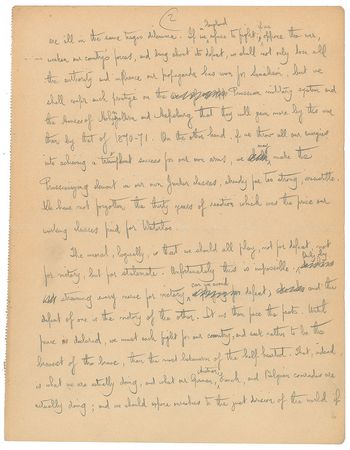 (2
are all in the same tragic dilemma. If in England we refuse to fight, if we oppose the war,
weaken our country's forces, and bring about its defeat, we shall not only lose all
the authority and influence our propaganda has won for Socialism, but we
shall confer such prestige on the Prussian military system and
the houses of Hohenzollern and Hapsburg that they will gain more by this war
than by that of 1870-71. On the other hand, if we throw all our energies
into achieving a triumphant success for our own arms, we may make the
Prussianizing element in our own Junker classes, already far too strong, irresistible.
We have not forgotten the thirty years of reaction which was the price our
working classes paid for Waterloo.
The moral, logically, is that we should all play, not for defeat, not
for victory, but for stalemate. Unfortunately this is impossible. Only by
straining every nerve for victory can we avoid defeat, and the
defeat of one is the victory of the other. Let us then face the facts. Until
peace is declared, we must each fight for our country, and seek rather to be the
bravest of the brave, than the most lukewarm of the half hearted. That, indeed,
is what we are actually doing, and what our German, Austrian, French, and Belgian comrades are
actually doing; and we should expose ourselves to the just derision of the world if